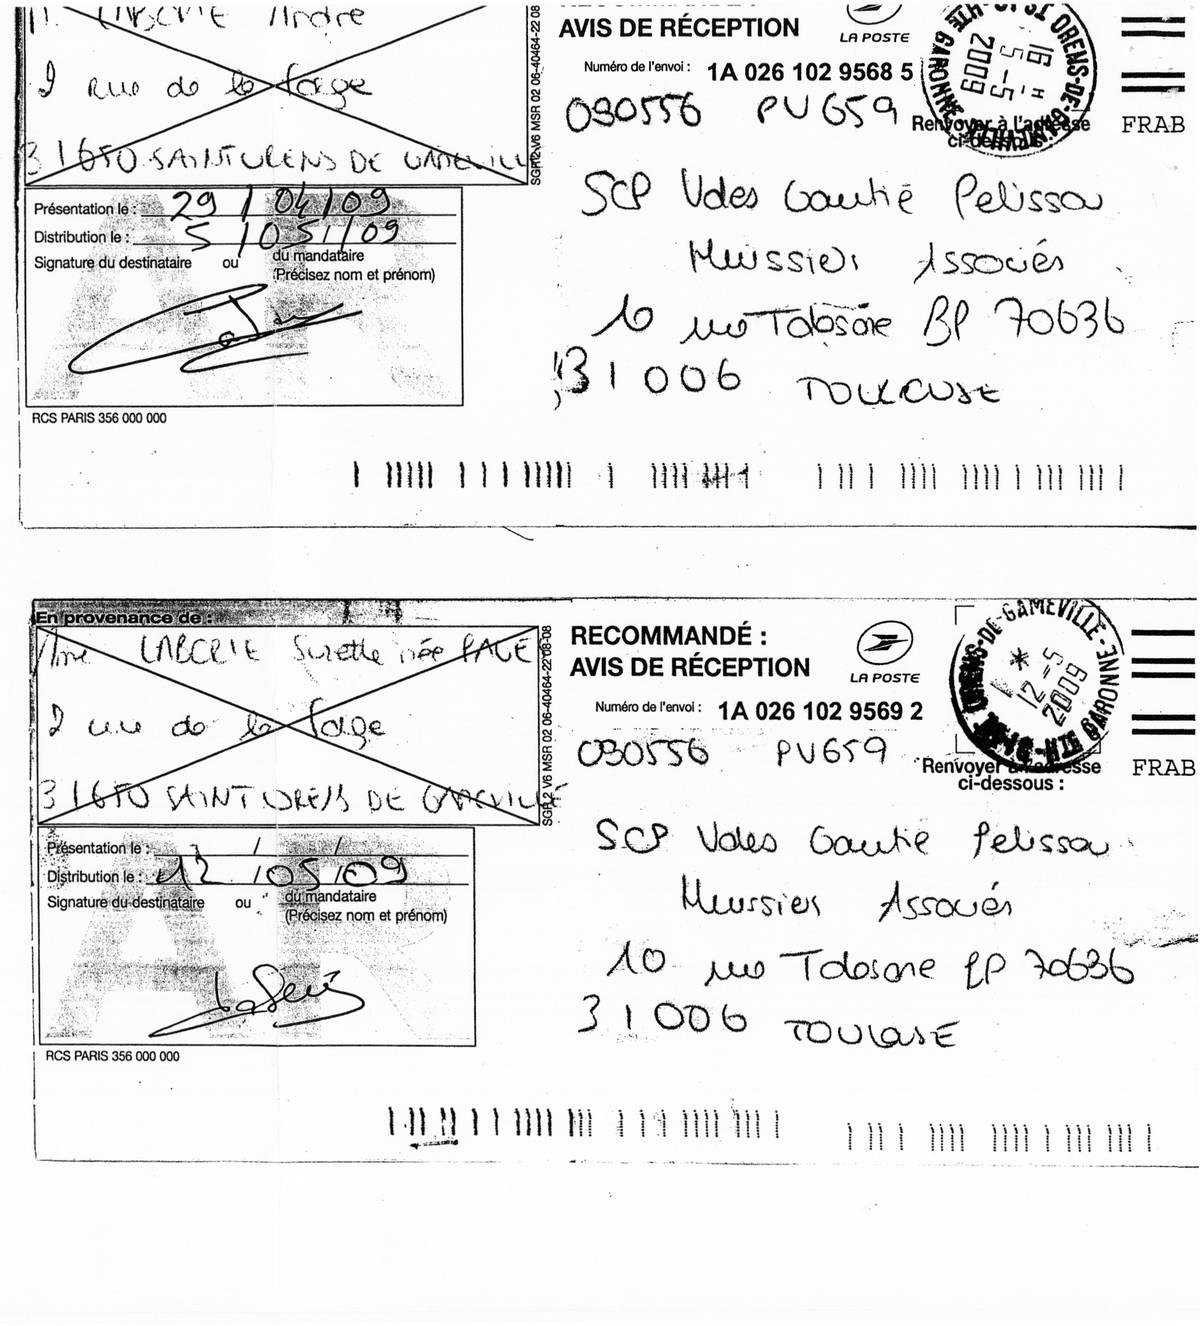 M. LABORIE André
2 rue de la forge
31650 SAINT ORENS DE GAMEVILLE
SGR 2 V6 MSR 02 06-40464-22 08
AVIS DE RÉCEPTION
LA POSTE
Numéro de l'envoi : 1A 026 102 9568 5
030556 PV659
ST ORENS-DE-GAMEVILLE
HTE GARONNE
5-5
2009
Renvoyer à l'adresse
ci-dessous :
FRAB
Présentation le : 29/04/09
Distribution le : 5/05/09
Signature du destinataire ou du mandataire
(Précisez nom et prénom)
SCP Vales Gautié Pelissou
Huissiers Associés
10 rue Tolosane BP 70636
31006 TOULOUSE
RCS PARIS 356 000 000
En provenance de :
Mme LABORIE Suzette née PAGE
2 rue de la forge
31650 SAINT ORENS DE GAMEVILLE
SGR 2 V6 MSR 02 06-40464-22 08-08
RECOMMANDÉ :
AVIS DE RÉCEPTION
LA POSTE
Numéro de l'envoi : 1A 026 102 9569 2
030556 PV659
ORENS-DE-GAMEVILLE
HTE GARONNE
12-5
2009
Renvoyer à l'adresse
ci-dessous :
FRAB
Présentation le : / /
Distribution le : 12/05/09
Signature du destinataire ou du mandataire
(Précisez nom et prénom)
SCP Vales Gautié Pelissou
Huissiers Associés
10 rue Tolosane BP 70636
31006 TOULOUSE
RCS PARIS 356 000 000